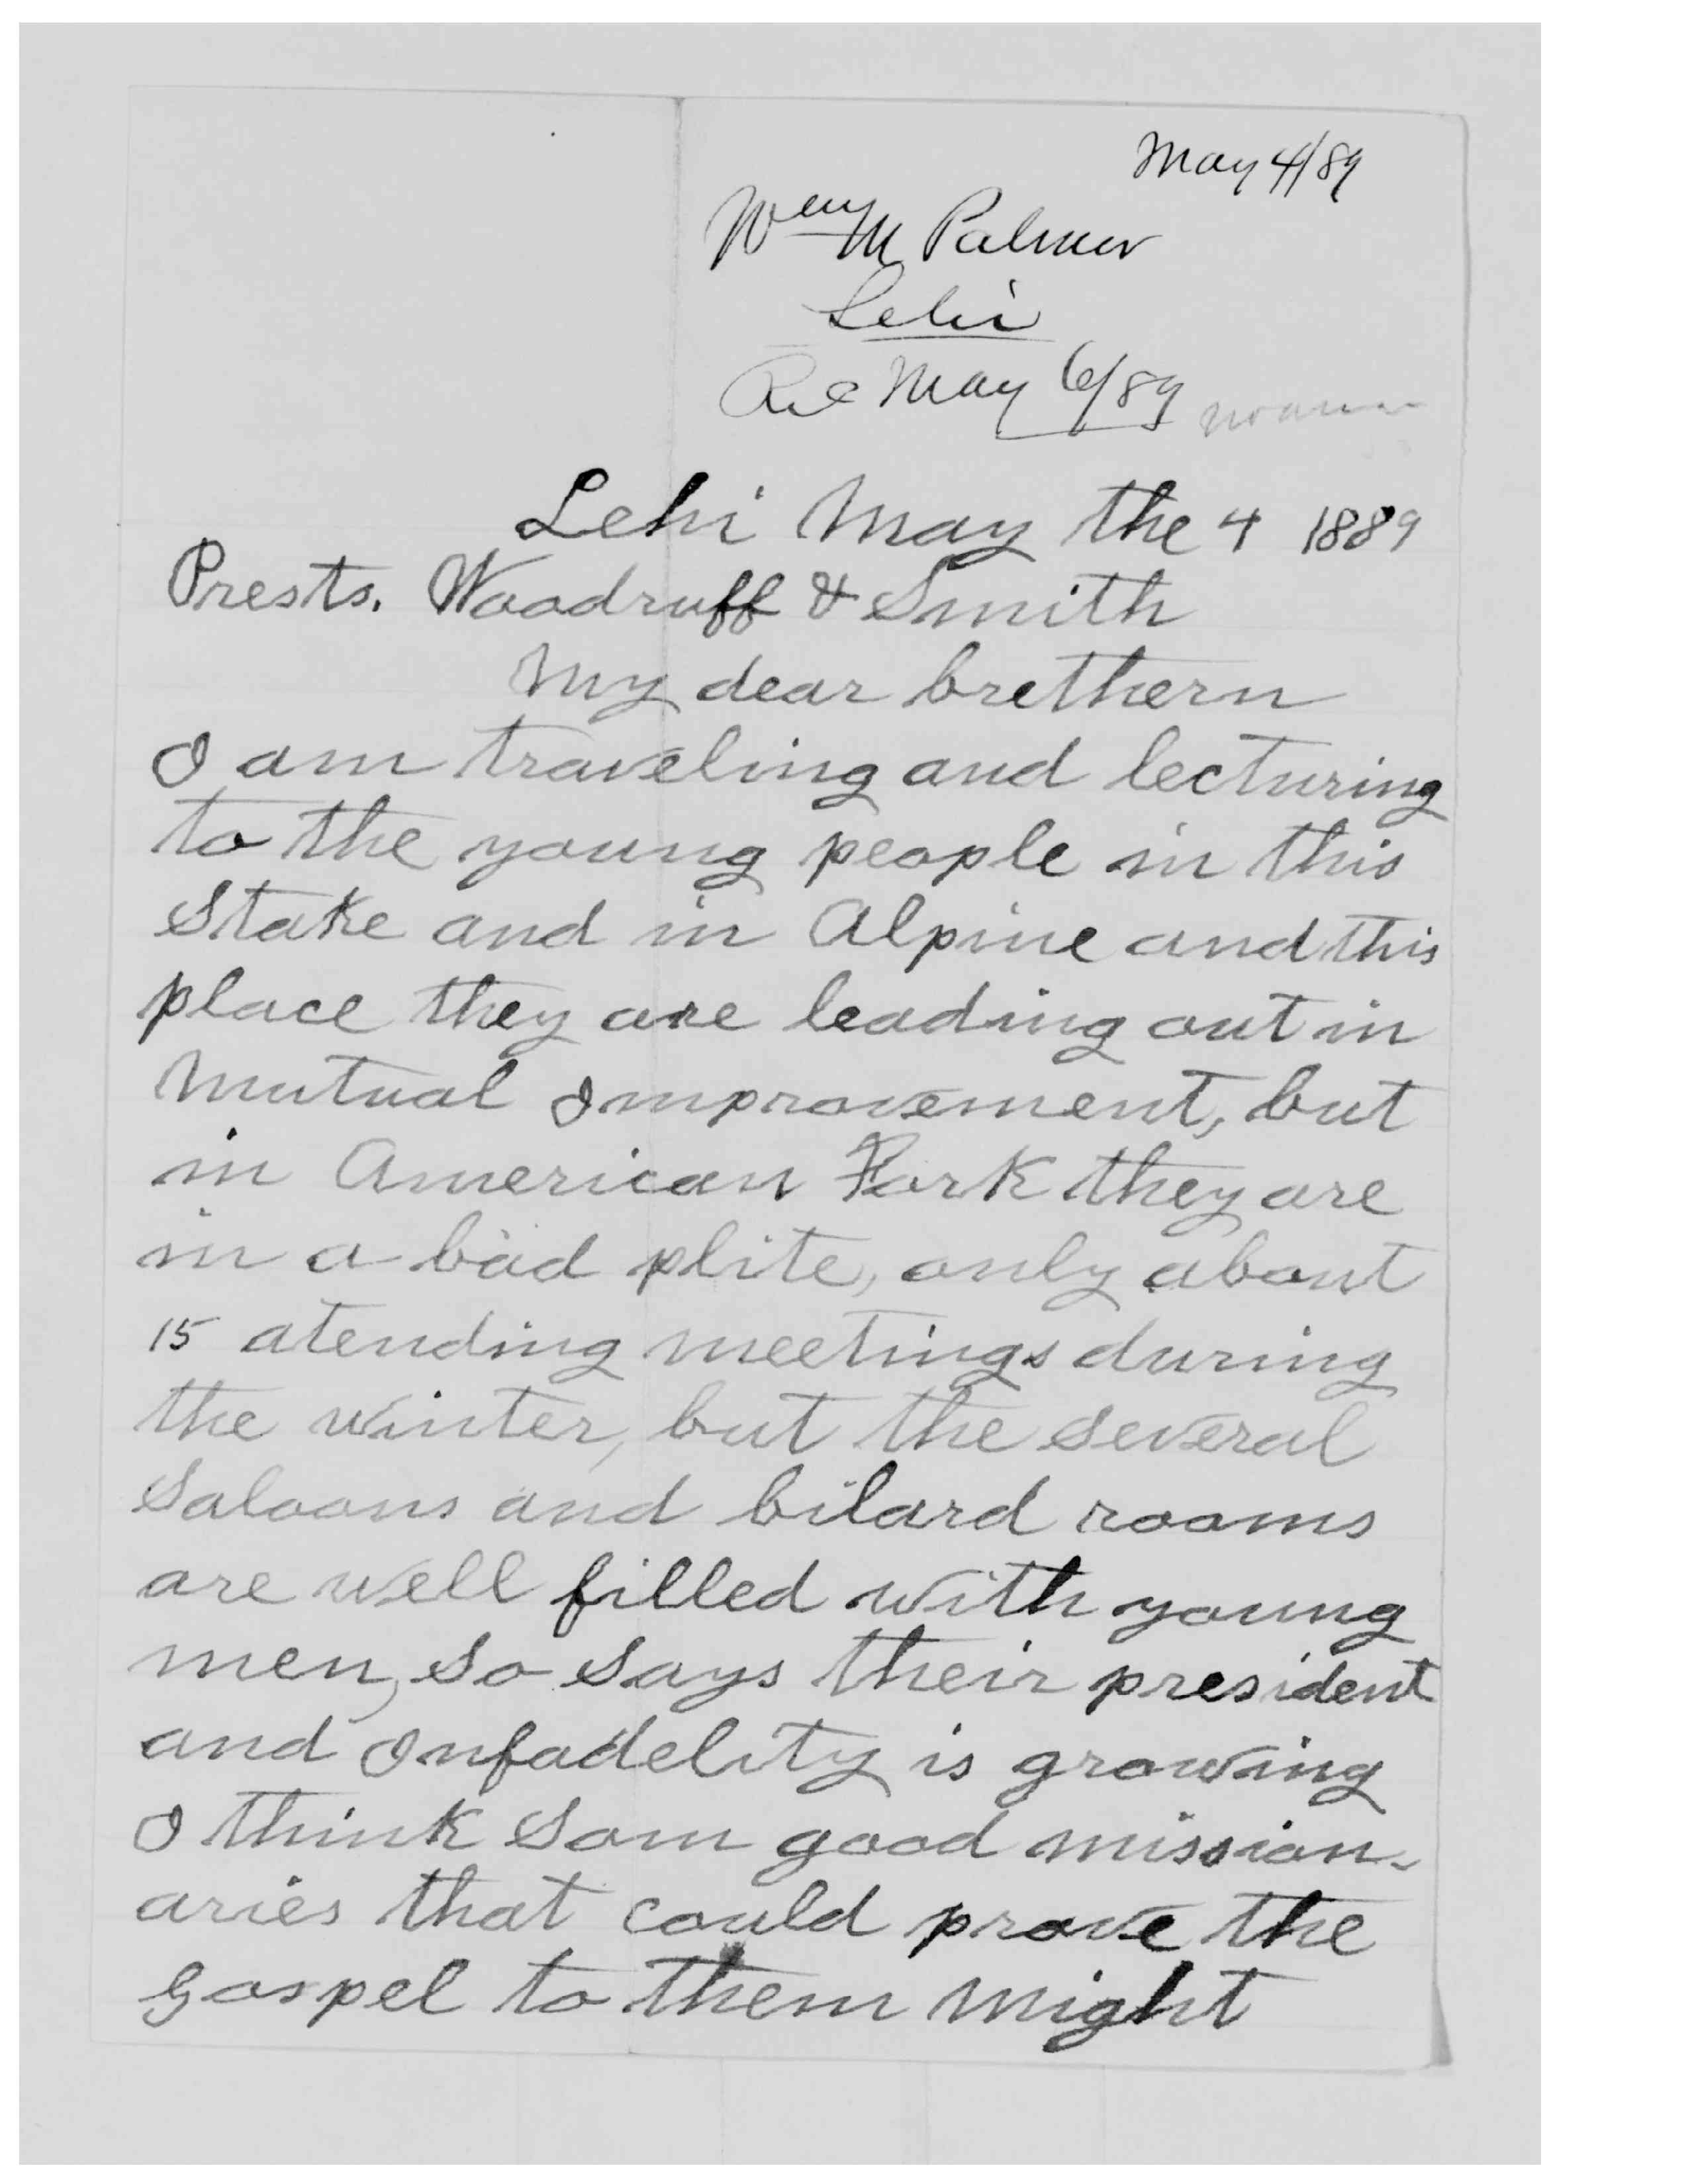 May 4/89
Wm M Palmer
Lehi
Rec May 6/89
Lehi May the 4 1889
Prests. Woodruff & Smith
My dear brethern
I am traveling and lecturing
to the young people in this
Stake and in Alpine and this
place they are leading out in
Mutual Improvement, but
in American Fork they are
in a bad plite, only about
15 atending meetings during
the winter, but the several
Saloons and bilard rooms
are well filled with young
men, so says their president
and Infadelity is growing
I think som good mission-
aries that could prove the
Gospel to them might